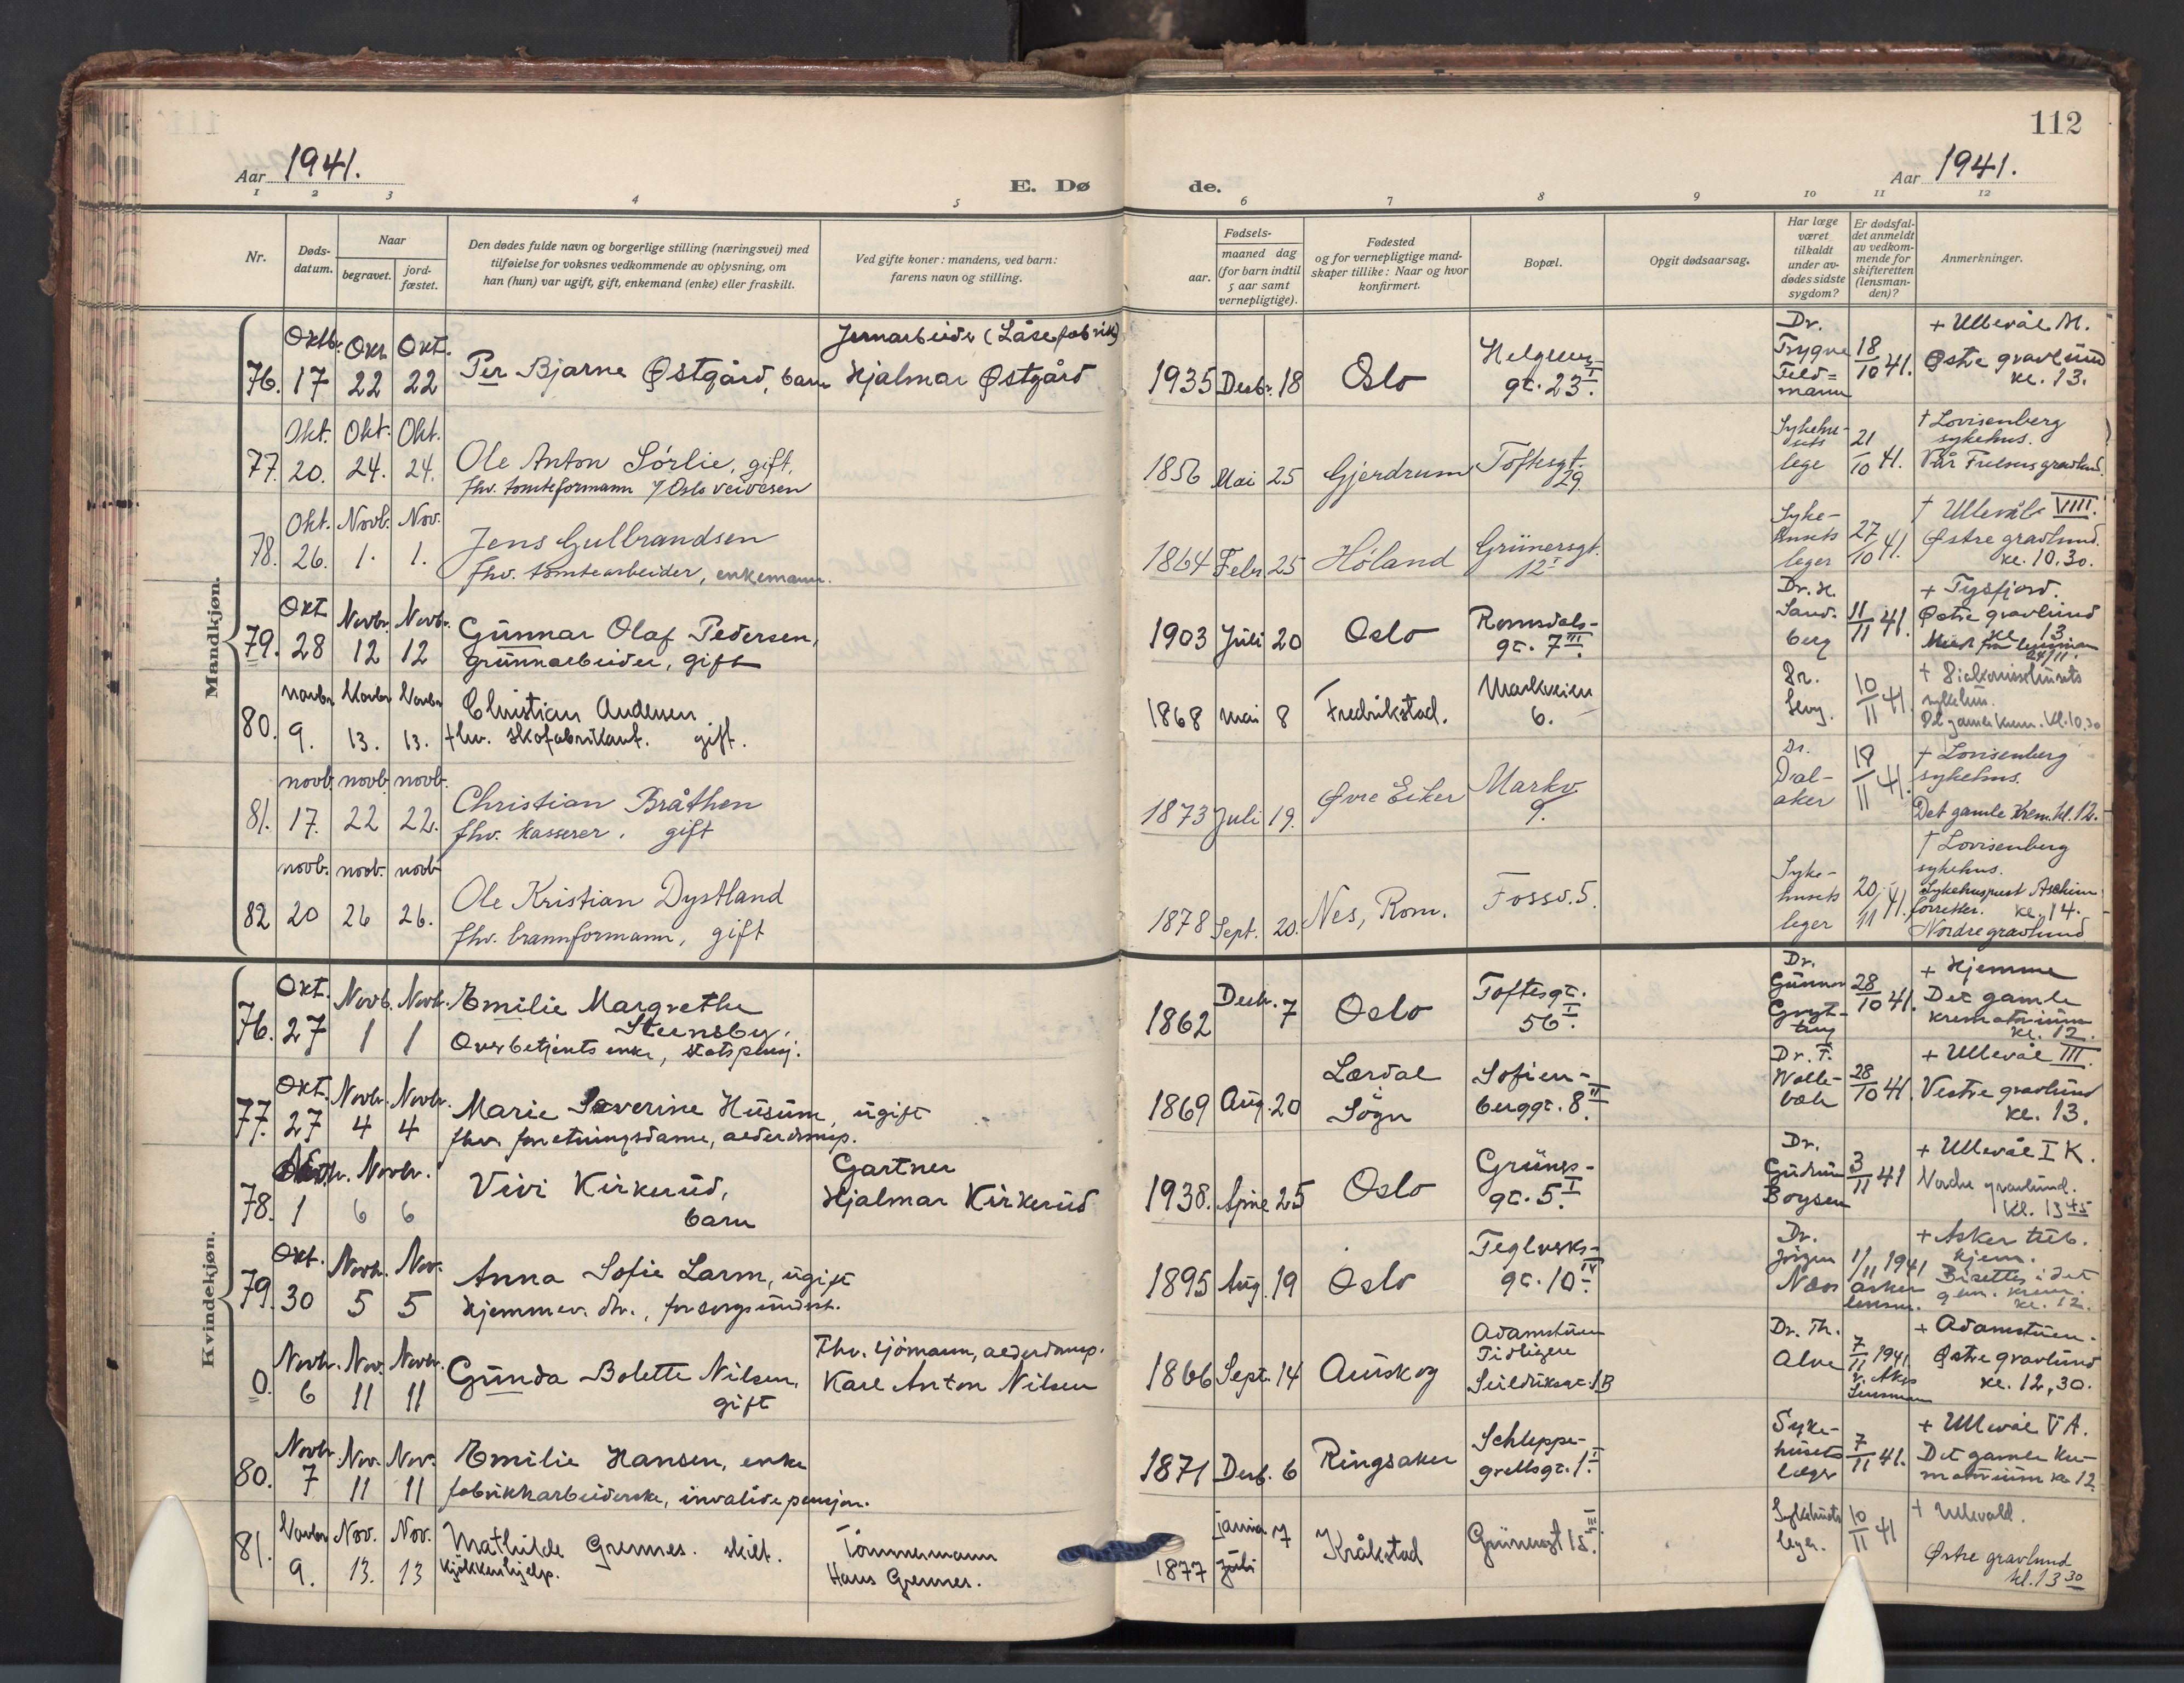 112
Aar 1941.
E. Døde.
Aar 1941.
1 2 3 4 5 6 7 8 9 10 11 12
Nr.
Døds-datum.
Naar
begravet.
jord-fæstet.
Den dødes fulde navn og borgerlige stilling (næringsvei) med
tilføielse for voksnes vedkommende av oplysning, om
han (hun) var ugift, gift, enkemand (enke) eller fraskilt.
Ved gifte koner: mandens, ved barn:
farens navn og stilling.
Fødsels-
aar.
maaned dag
(for barn indtil
5 aar samt
vernepligtige).
Fødested
og for vernepligtige mand-
skaper tillike: Naar og hvor
konfirmert.
Bopæl.
Opgit dødsaarsag.
Har læge
været
tilkaldt
under av-
dødes sidste
sygdom?
Er dødsfal-
det anmeldt
av vedkom-
mende for
skifteretten
(lensman-
den)?
Anmerkninger.
Mandkjøn.
76. Oktb. 17 Okt. 22 Okt. 22
Per Bjarne Østgård, barn
Jernarbeider (Låsefabrik)
Hjalmar Østgård
1935 Desb. 18 Oslo
Helgesens-
gt. 23 I.
Dr.
Trygve
Feld=
mann
18/10 41.
+ Ullevål M.
Østre gravlund
kl. 13.
77. Okt. 20. Okt. 24. Okt. 24.
Ole Anton Sórlie, gift,
fhv. tomteformann v/ Oslo veivesen
1856 Mai 25 Gjerdrum
Toftesgt.
29
Sykehu-
sets
lege
21/10 41.
† Lovisenberg
sykehus.
Vår Frelsers gravlund.
78. Okt. 26. Novb. 1. Nov. 1.
Jens Gulbrandsen
fhv. tomtearbeider, enkemann.
1864 Febr 25 Hóland
Grünersgt.
12 I
Syke-
husets
leger
27/10 41.
† Ullevål VIII.
Østre gravlund.
kl. 10.30.
79. Okt 28 Novbr. 12 Novbr. 12
Gunnar Olaf Pedersen,
grunnarbeider, gift
1903 Juli 20 Oslo
Romsdals-
gt. 7 III.
Dr. H.
Sand-
berg
11/11 41.
+ Tysfjord.
Østre gravlund
kl. 13
24/11.
80. Novbr 9. Novbr 13. Novbr 13.
Christian Andersen
fhv. skofabrikant. gift.
1868 Mai 8 Fredrikstad.
Markveien
6.
Dr.
10/11 41.
sykehus.
Det gamle krem. kl. 10.30
81. novb. 17. novb. 22 novb. 22.
Christian Bråthen
fhv. kasserer. gift
1873 Juli 19. Øvre Eiker
Markv.
9.
Dr.
Dal-
aker
18/11 41.
† Lovisenberg
sykehus.
Det gamle krem. kl. 12.
82 novb. 20 novb. 26 novb. 26.
Ole Kristian Dystland
fhv. brannformann, gift
1878 Sept. 20. Nes, Rom. Fossv. 5.
Syke-
husets
leger
20/11 41.
† Lovisenberg
sykehus.
Sykehusprest Aschim
forretter. kl. 14.
Nordre gravlund
Kvindekjøn.
76. Okt. 27 Novb. 1 Novb. 1
Emilie Margrethe
Steensby,
Overbetjents enke, statspensj.
1862 Desb. 7 Oslo
Toftesgt.
56 I.
Dr.
Gunnar
28/10 41.
+ Hjemme
Det gamle
krematorium
kl. 12.
77. Okt. 27 Novbr. 4 Novbr. 4
Marie Severine Husum, ugift
fhv. forretningsdame, alderdomsp.
1869 Aug. 20
Lærdal
Sogn
Sofien-
berggt. 8 II.
Dr. F.
Wolle-
bæk
28/10 41.
+ Ullevål III.
Vestre gravlund
kl. 13.
78. Novbr. 1 Novbr. 6 6
Vivi Kirkerud,
barn
Gartner
Hjalmar Kirkerud
1938. April 25 Oslo
Grüners-
gt. 5 I.
Dr.
Gudrun
Boysen
3/11 41
+ Ullevål I K.
Nordre gravlund.
kl. 13 45
79. Okt. 30 Novb. 5 Nov. 5
Anna Sofie Larm, ugift
hjemmev. dtr., forsorgsunderst.
1895 Aug. 19 Oslo
Teglverks-
gt. 10 IV.
Dr.
Jørgen
Næss
1/11 1941
Asker
lensm.
+ Asker tub.
hjem.
Bisettes i det
gml. krem.
kl. 12.
0. Novbr. 6 Nov. 11 Novbr. 11
Gunda Bolette Nilsen,
gift
Fhv. sjömann, alderdomsp.
Karl Anton Nilsen
1866 Sept. 14 Aurskog
Adamstuen
Tidligere
Seilduksgt. 1 B
Dr. Th.
Alve
7/11 1941
Lensmann
+ Adamstuen.
Østre gravlund
kl. 12,30.
80. Novbr 7 Nov. 11 Nov. 11
Emilie Hansen, enke
fabrikkarbeiderske, invalidepensjon.
1871 Desb. 6 Ringsaker
Schleppe-
grellsgt. 1 I.
Syke-
husets
leger
7/11 41.
+ Ullevål V A.
Det gamle kre-
matorium kl 12
81. Novbr 9. Nov. 13. Nov. 13
Mathilde Grennes. skilt.
Kjøkkenhjelp.
Tömmermann
Hans Grennes.
1877 januar 7
Juli
Kråkstad
Grünersgt 15 III.
Sykehusets
leger.
10/11 41
† Ullevål.
Østre gravlund
kl. 13 30